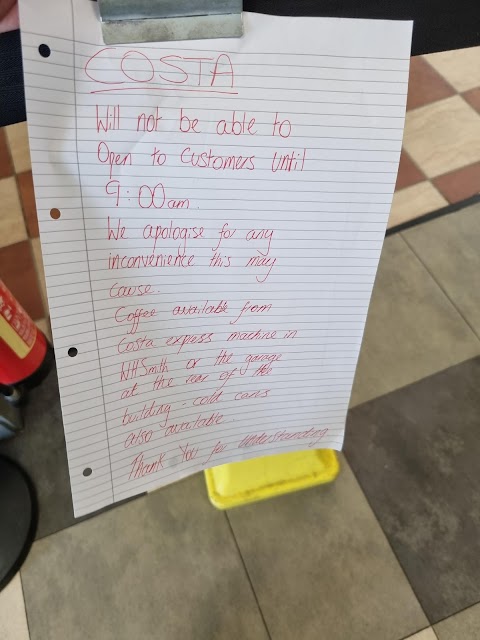 COSTA
Will not be able to
Open to Customers until
9:00am.
We apologise for any
inconvenience this may
cause.
Coffee available from
Costa express machine in
WHSmith or the garage
at the rear of the
building - cold cans
also available.
Thank You for Understanding